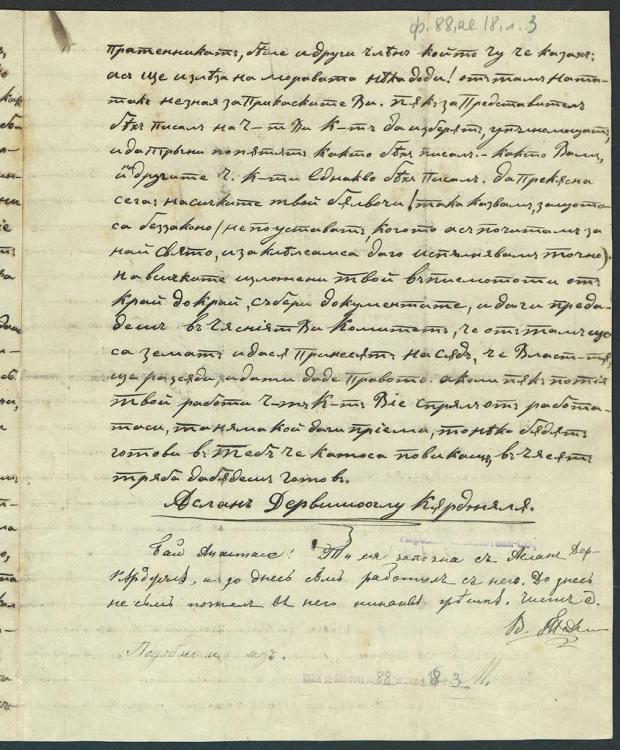 ф. 88, ае 18, л. 3
пратеникатъ, бѣле и други членъ който чу че казахъ:
асъ ще излѣза на Моравата нѣка доди! отъ тамъ ната-
такъ незная за Приказките Ви. пякъ за Представителъ
бѣхъ писалъ на Ч-т Ви К-тъ да изберятъ, упълномощатъ,
и да тръгни по пятятъ както бѣхъ писалъ. – както Вамъ,
и другите Ч. К-ти еднакво бѣхъ писалъ. да
сега: на сичките твой /така казвамъ, защото
са беззаконо/ не поуставатъ когото асъ почитамъ за
най свято, и за клѣлсамса даго испълнявамъ точно).
на всичките изложени твой въ писмото ти отъ
край до край, събери документите, и да ги преда-
дешъ въ Чясніят Ви Комитетъ, че отъ тамъ ще
са зематъ и дася принесятъ на сядъ, че Власт-та,
ще разсяди, и дати даде правото. ако ли пякъ по тія
твой работи Ч-тъ К-тъ Віе спрялъ отъ работа-
таси, та няма кой да ги пріема, то нѣка бядятъ
готови въ тебъ че като са повикашъ, въ Чясятъ
тряба да бядешъ готов.
Асланъ Дервишоолу Кярджяля.
Бай Анастасе! Ти ля започна съ Асланъ Дер-
Кярджяля, и до днесъ съмъ работилъ съ него. До днесъ
не съмъ познал въ него никакви грѣшки. Чистъ е.
88 18 3